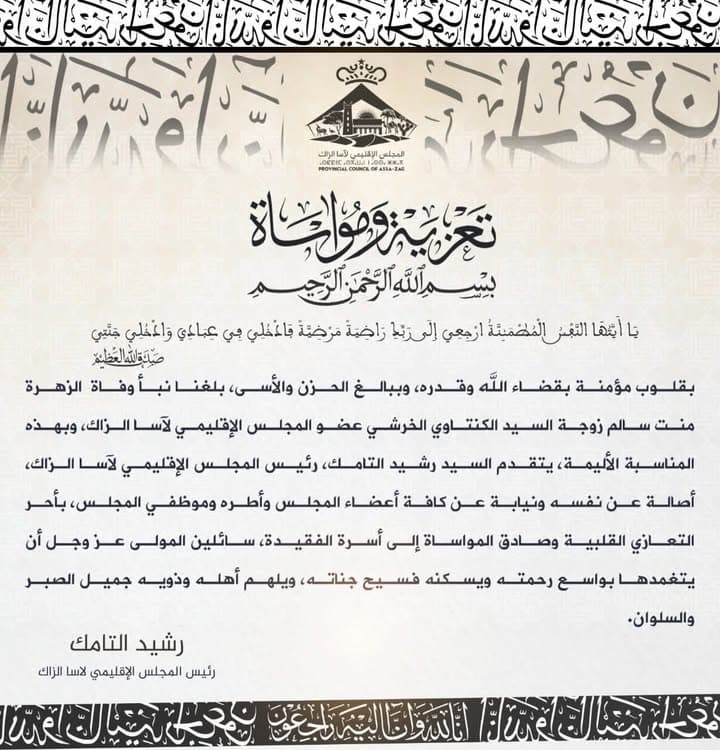 المجلس الإقليمي لآسا الزاك
PROVINCIAL COUNCIL OF ASSA-ZAG
تعزية ومواساة
بسم الله الرحمن الرحيم
يا أيتها النفس المطمئنة ارجعي إلى ربك راضية مرضية فادخلي في عبادي وادخلي جنتي
صدق الله العظيم
بقلوب مؤمنة بقضاء الله وقدره، وببالغ الحزن والأسى، بلغنا نبأ وفاة الزهرة
منت سالم زوجة السيد الكنتاوي الخرشي عضو المجلس الإقليمي لآسا الزاك، وبهذه
المناسبة الأليمة، يتقدم السيد رشيد التامك، رئيس المجلس الإقليمي لآسا الزاك،
أصالة عن نفسه ونيابة عن كافة أعضاء المجلس وأطره وموظفي المجلس، بأحر
التعازي القلبية وصادق المواساة إلى أسرة الفقيدة، سائلين المولى عز وجل أن
يتغمدها بواسع رحمته ويسكنه فسيح جناته، ويلهم أهله وذويه جميل الصبر
والسلوان.
رشيد التامك
رئيس المجلس الإقليمي لاسا الزاك
إنا لله وإنا إليه راجعون